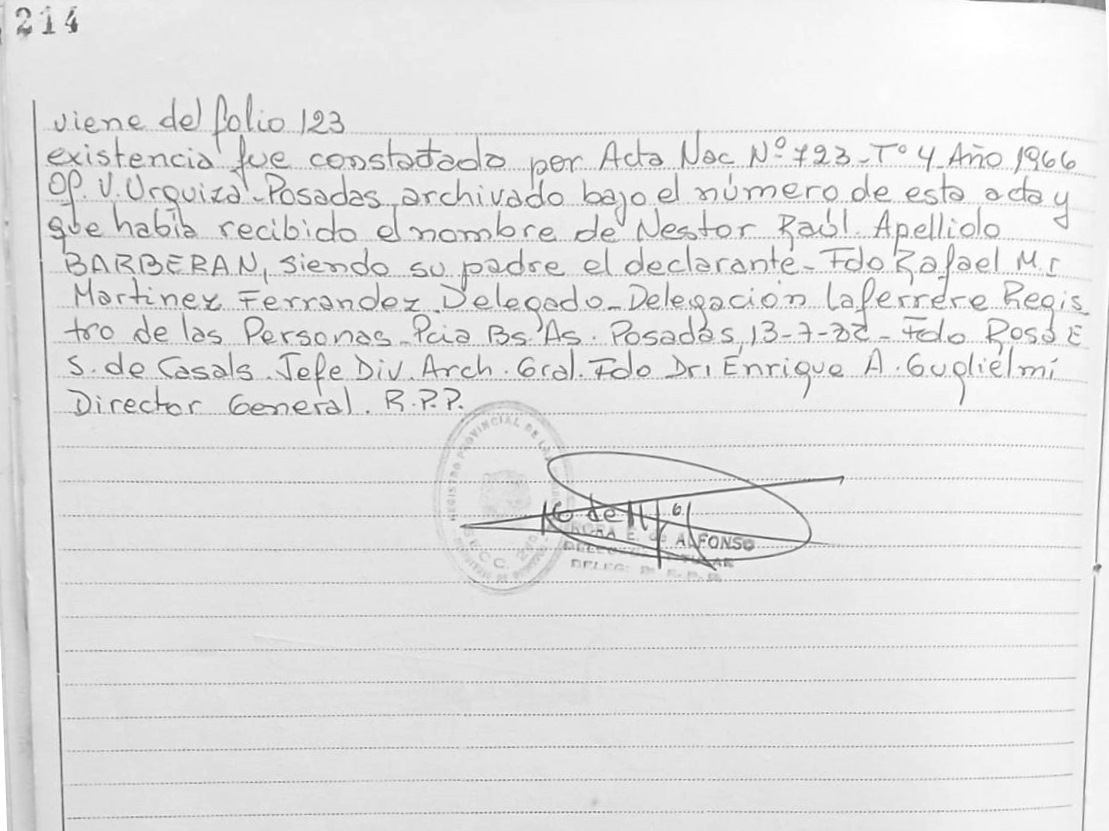 214
viene del folio 123
existencia fue constatada por Acta Nac Nº 723-Tº 4 Año 1966
Of. V. Urquiza-Posadas, archivado bajo el número de esta acta y
que había recibido el nombre de Nestor Raúl. Apellido
BARBERAN, siendo su padre el declarante-Fdo Rafael M.I
Martinez Ferrandez. Delegado-Delegación Laferrére Regis
tro de las Personas-Pcia Bs. As. Posadas, 13-7-82-Fdo Rosa E
S. de Casals. Jefe Div. Arch. Gral. Fdo Dr. Enrique A. Guglielmi
Director General. R.P.P.
REGISTRO PROVINCIAL DE
E. de ALFONSO
DELEG.